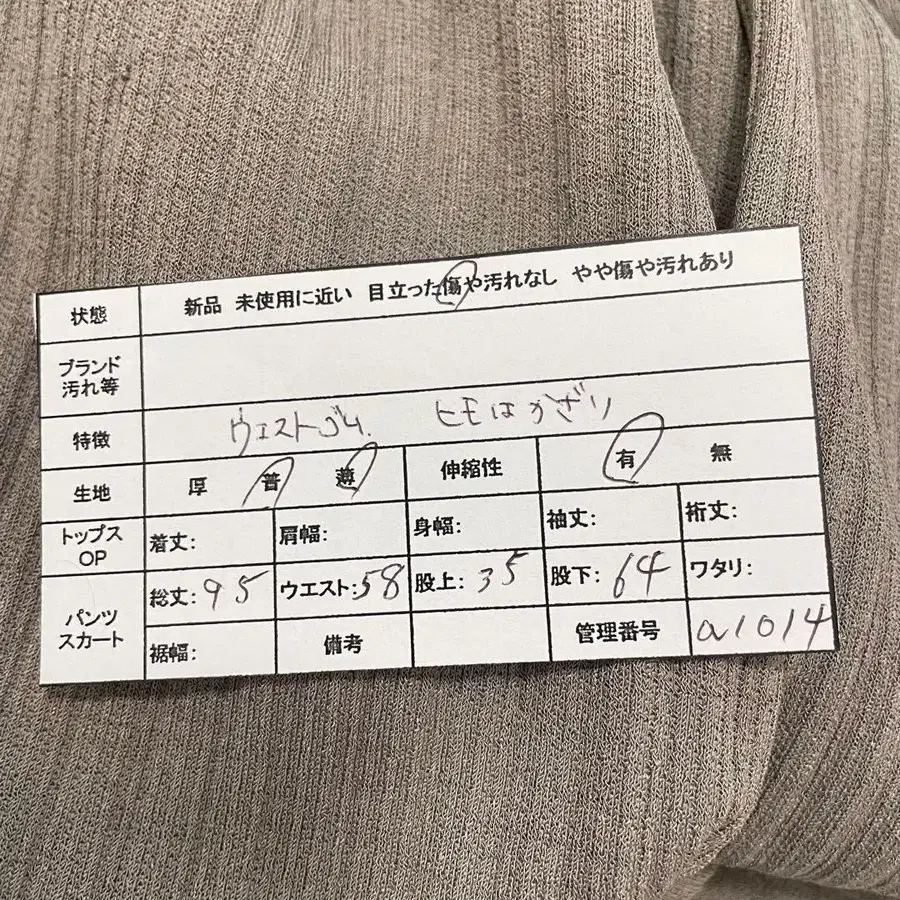 状態 新品 未使用に近い 目立った傷や汚れなし やや傷や汚れあり
ブランド
汚れ等
特徴 ウエストゴム. ヒモはかざり
生地 厚 普 薄 伸縮性 有 無
トップス
OP
着丈: 肩幅: 身幅: 袖丈: 裄丈:
パンツ
スカート
総丈:95 ウエスト:58 股上:35 股下:64 ワタリ:
裾幅: 備考 管理番号 a1014